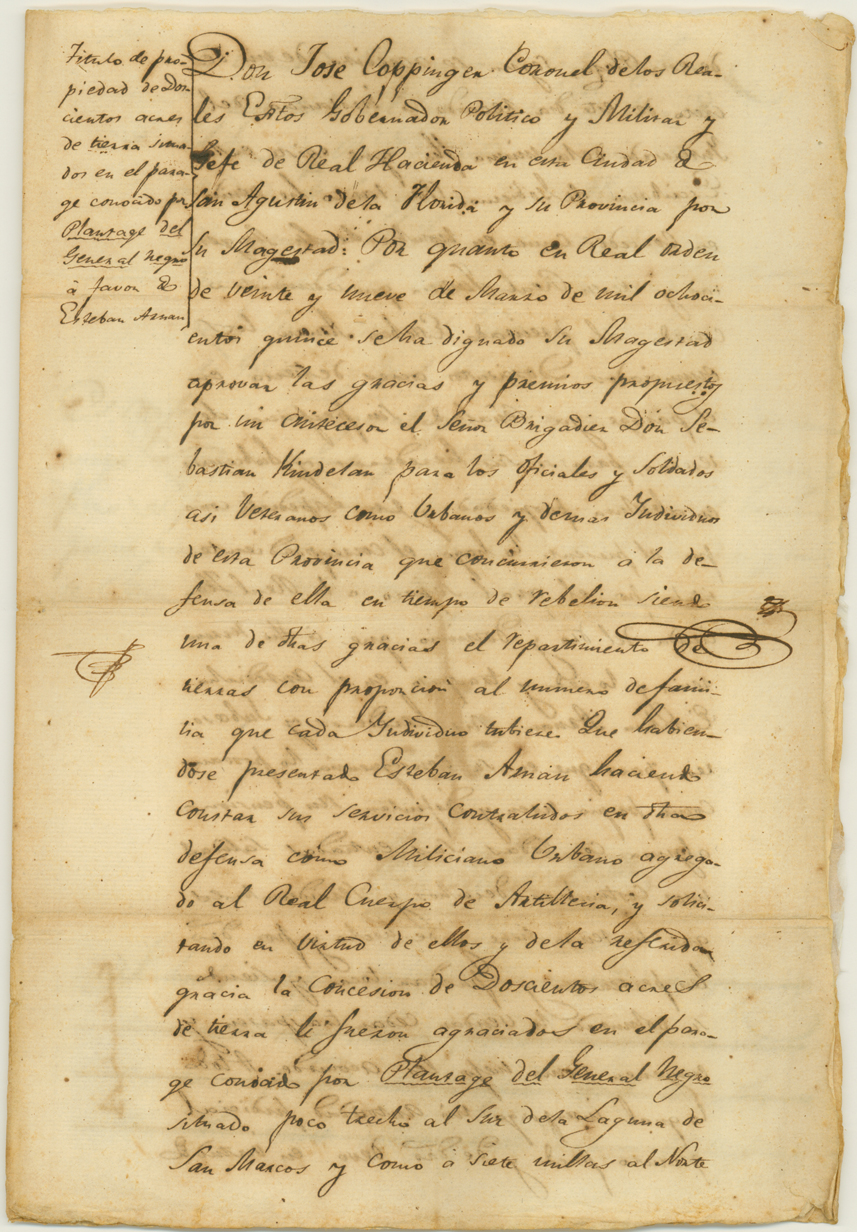 Titulo de pro-
piedad de Dos-
cientos acres
de tierra situa-
dos en el para-
ge conocido por
Plantage del
General negro
à favor de
Esteban Arnau
Don Jose Coppinger Coronel de los Rea-
les Extos Gobernador Politico y Militar y
Gefe de Real Hacienda en esta Ciudad de
San Agustin de la Florida y su Provincia por
Su Magestad: Por quanto en Real orden
de veinte y nueve de Marzo de mil ochoci-
entos quince se ha dignado Su Magestad
aprovar las gracias y premios propuestos
por mi antecesor el Señor Brigadier Don Se-
bastian Kindelan para los oficiales y Soldados
asi Veteranos como Urbanos y demas Individuos
de esta Provincia que concurrieron à la de-
fensa de ella en tiempo de rebelion siendo
una de dhas gracias el repartimiento de
tierras con proporcion al numero de fami-
lia que cada Individuo tubiere. Que habien-
dose presentado Esteban Arnau haciendo
constar sus servicios contrahidos en dha
defensa como Miliciano Urbano agrega-
do al Real Cuerpo de Artilleria, y solici-
tando en virtud de ellos y de la referida
gracia la Concesion de Doscientos acres
de tierra le fueron agraciados en el para-
ge conocido por Plantage del General Negro
situado poco trecho al Sur de la Laguna de
San Marcos y como à siete millas al Norte